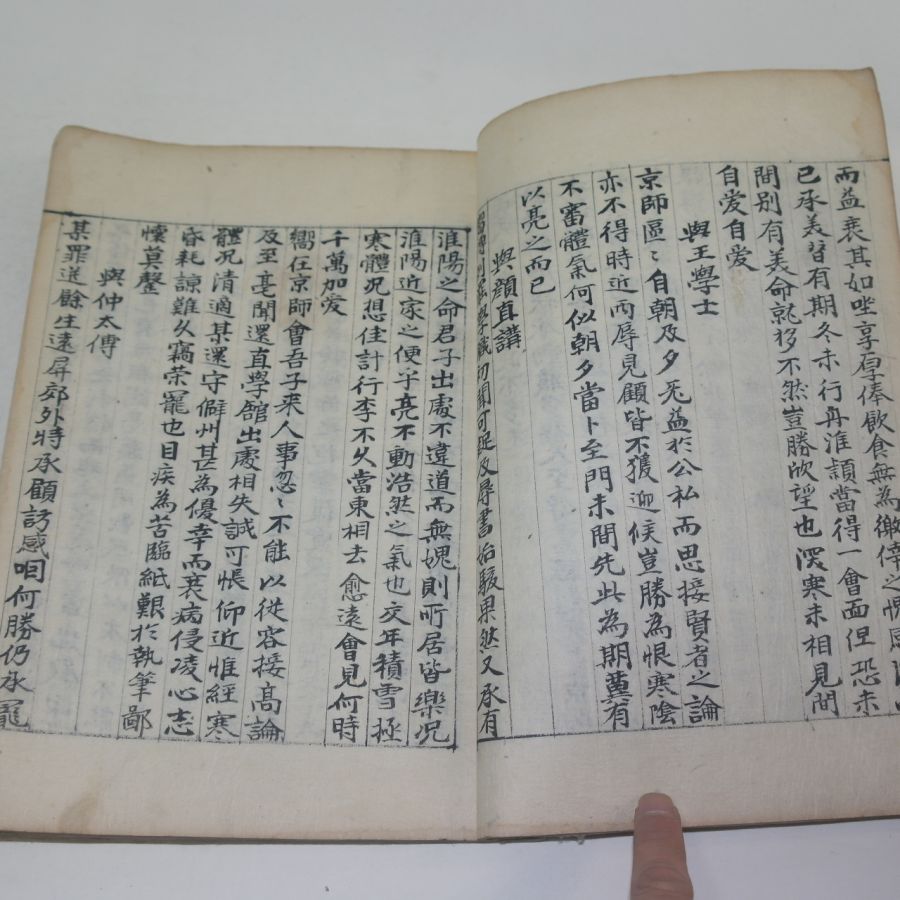 而益衰其如坐享厚俸飲食無為徼倖之愧感
已承美習有期冬未行舟淮潁當得一會面但恐未
間別有美命就移不然豈勝欣望也深寒未相見間
自爱自爱
與王學士
京師區〻自朝及夕无益於公私而思接賢者之論
亦不得時近兩辱見顧皆不獲迎候豈勝為恨寒陰
不審體氣何似朝夕當卜至門未間先此為期冀有
以亮之而已
與顔直講
及尋書始駭果然又承有
淮陽之命君子出處不違道而無媿則所居皆樂况
淮陽近家之便乎亮不動浩然之氣也交年積雪極
寒體况想佳計行李不久當東相去愈遠會見何時
千萬加爱
嚮在京師會吾子来人事忽〻不能以從容接髙論
及至亳聞還直學館出處相失誠可悵仰近惟經寒
體况清適某還守僻州甚為優幸而衰病侵凌心志
昏耗諒難久竊荣寵也目疾為苦臨紙艱於執筆鄙
懷莫罄
與仲太傅
某罪逆餘生遠屏郊外特承顧訪感咽何勝仍承寵